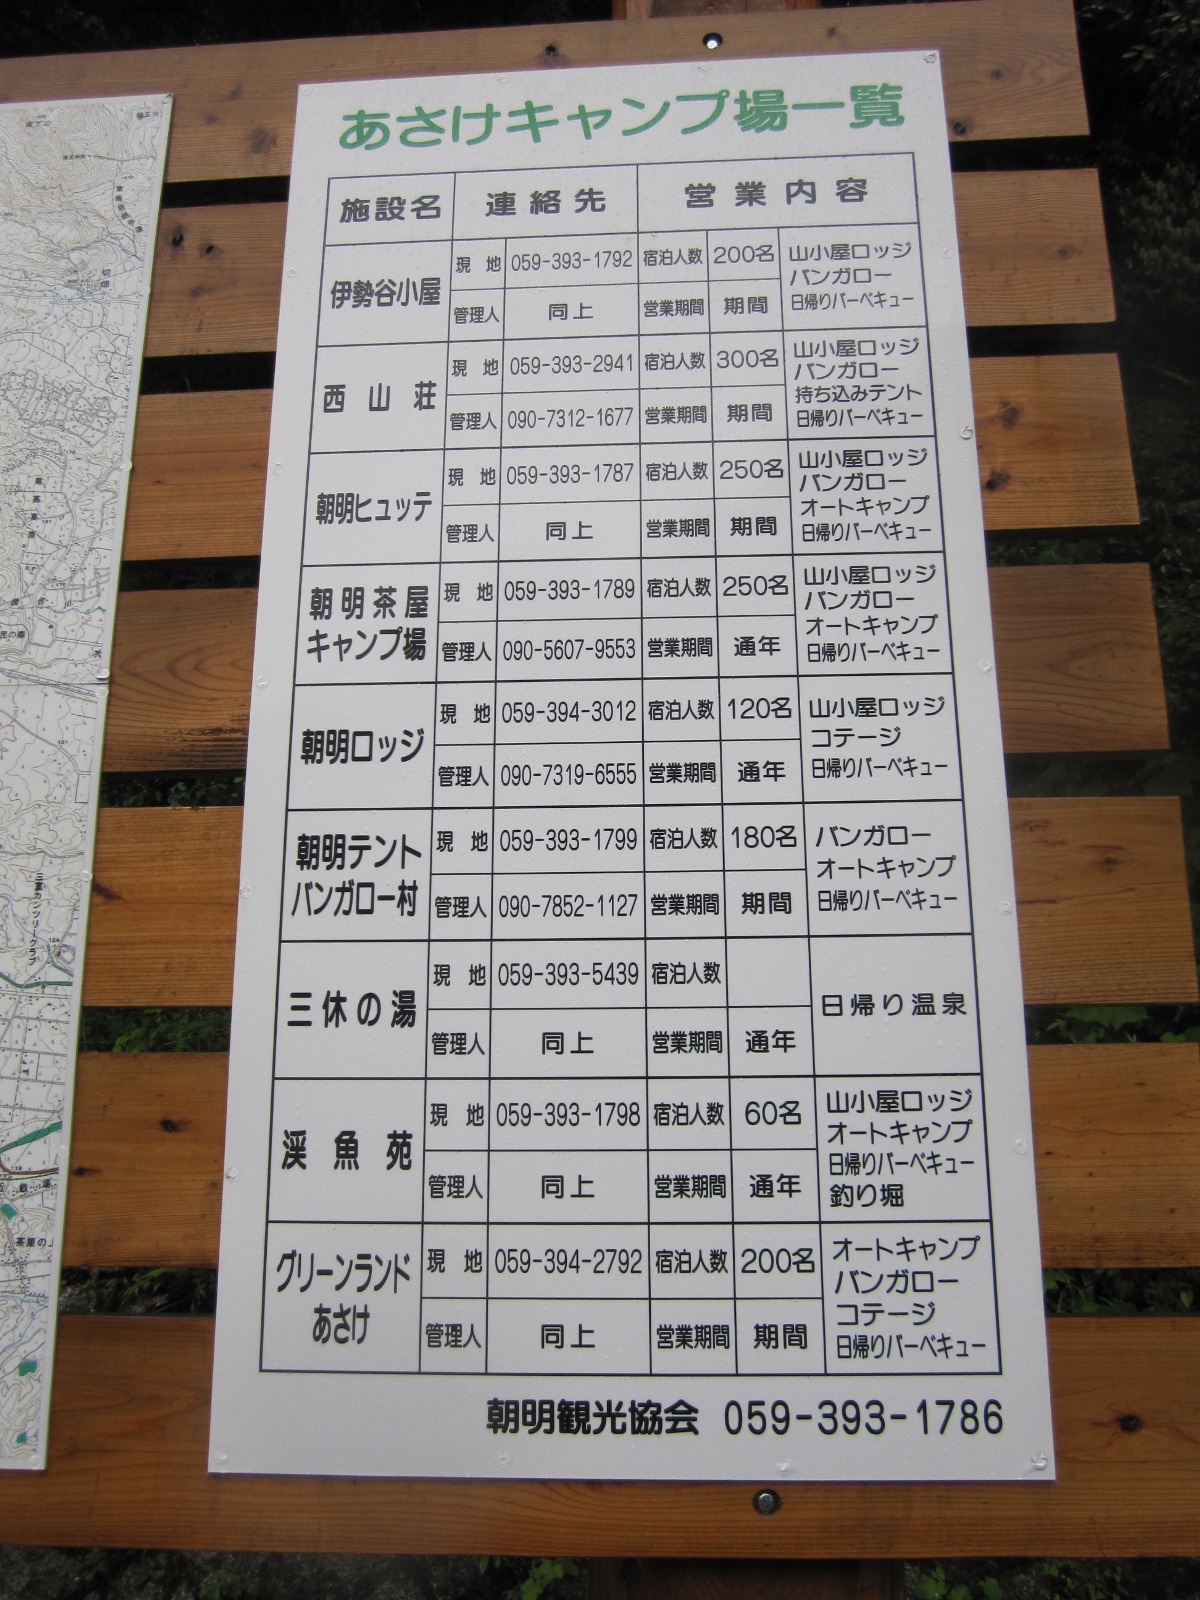 あさけキャンプ場一覧
施設名 連絡先 営業内容
伊勢谷小屋
現地 059-393-1792 宿泊人数 200名
管理人 同上 営業期間 期間
山小屋ロッジ
バンガロー
日帰りバーベキュー
西山荘
現地 059-393-2941 宿泊人数 300名
管理人 090-7312-1677 営業期間 期間
山小屋ロッジ
バンガロー
持ち込みテント
日帰りバーベキュー
朝明ヒュッテ
現地 059-393-1787 宿泊人数 250名
管理人 同上 営業期間 期間
山小屋ロッジ
バンガロー
オートキャンプ
日帰りバーベキュー
朝明茶屋
キャンプ場
現地 059-393-1789 宿泊人数 250名
管理人 090-5607-9553 営業期間 通年
山小屋ロッジ
バンガロー
オートキャンプ
日帰りバーベキュー
朝明ロッジ
現地 059-394-3012 宿泊人数 120名
管理人 090-7319-6555 営業期間 通年
山小屋ロッジ
コテージ
日帰りバーベキュー
朝明テント
バンガロー村
現地 059-393-1799 宿泊人数 180名
管理人 090-7852-1127 営業期間 期間
バンガロー
オートキャンプ
日帰りバーベキュー
三休の湯
現地 059-393-5439 宿泊人数
管理人 同上 営業期間 通年
日帰り温泉
渓魚苑
現地 059-393-1798 宿泊人数 60名
管理人 同上 営業期間 通年
山小屋ロッジ
オートキャンプ
日帰りバーベキュー
釣り堀
グリーンランド
あさけ
現地 059-394-2792 宿泊人数 200名
管理人 同上 営業期間 期間
オートキャンプ
バンガロー
コテージ
日帰りバーベキュー
朝明観光協会 059-393-1786
三重カンツリークラブ